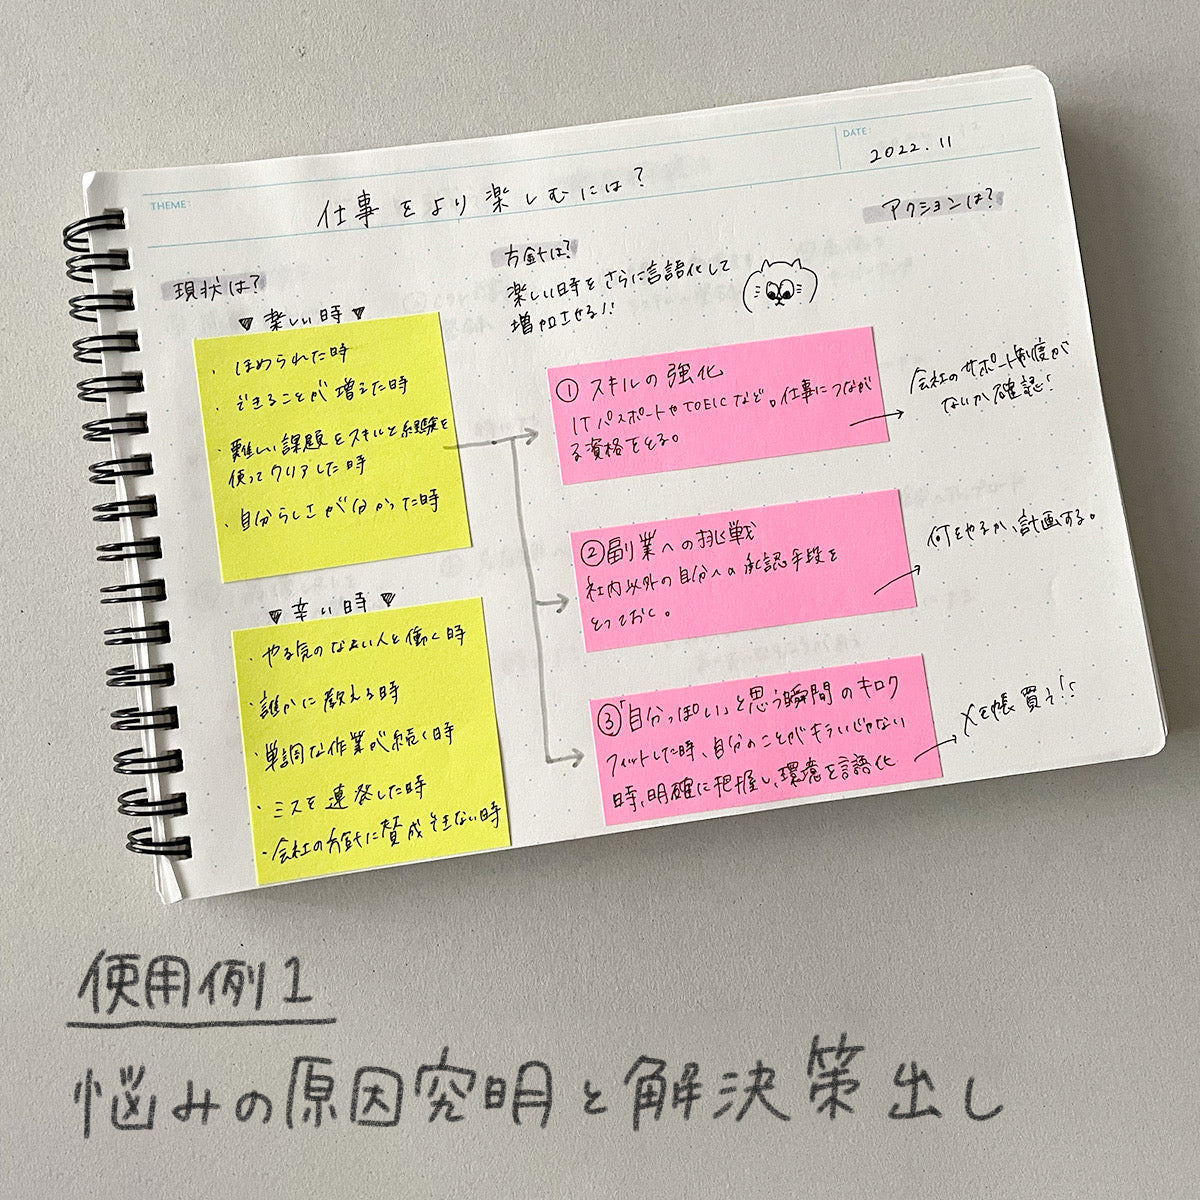 THEME:
仕事をより楽しむには?
DATE:
2022.11
現状は?
▼楽しい時▼
・ほめられた時
・できることが増えた時
・難しい課題をスキルと経験を
使ってクリアした時
・自分らしさが分かった時
▼辛い時▼
・やる気のない人と働く時
・誰かに教える時
・単調な作業が続く時
・ミスを連発した時
・会社の方針に賛成できない時
方針は?
楽しい時をさらに言語化して
増加させる!!
①スキルの強化
ITパスポートやTOEICなど。仕事につなが
る資格をとる。
②副業への挑戦
社内以外の自分への承認手段を
とっておく。
③「自分っぽい」と思う瞬間のキロク
フィットした時、自分のことがキライじゃない
時、明確に把握し、環境を言語化
アクションは?
会社のサポート制度が
ないか確認!
何をやるか、計画する。
メモ帳買う!!
使用例1
悩みの原因究明と解決策出し